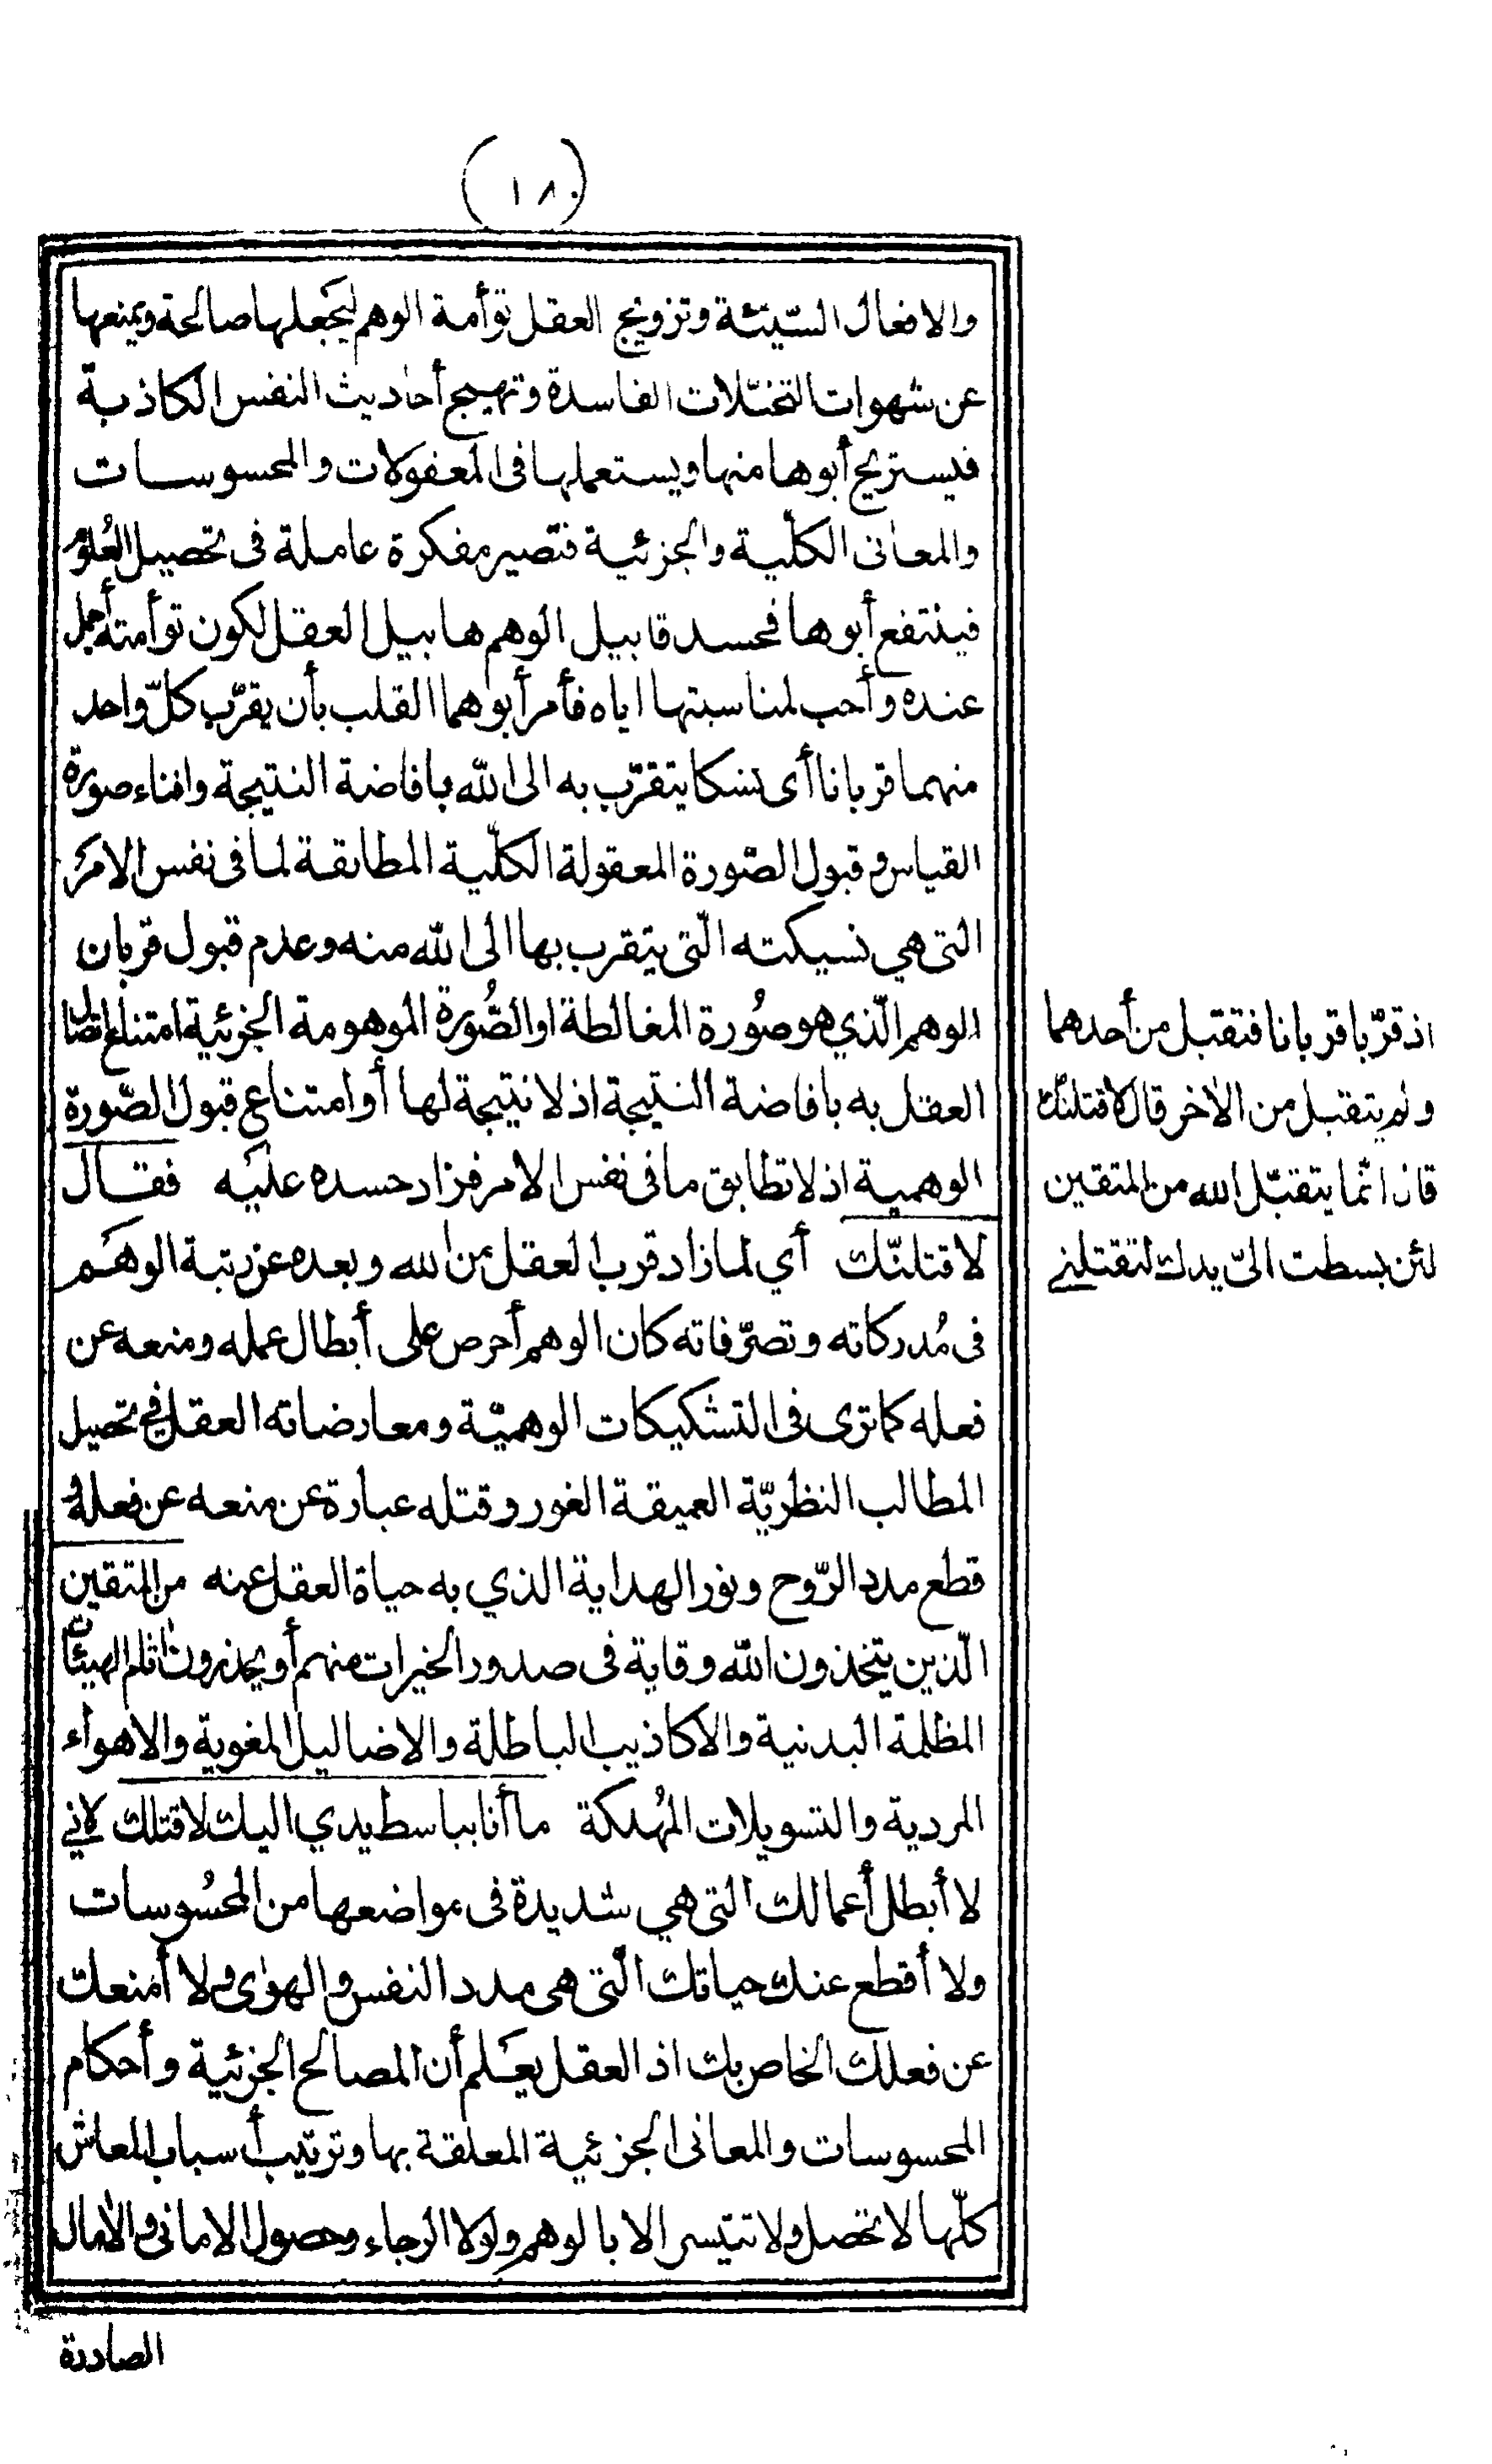 (١٨٠)
والافعال السّيّئة وتزويج العقل توأمة الوهم ليَجعلها صالحة ويمنعها
عن شهوات التخيّلات الفاسدة وتهييج أحاديث النفس الكاذبة
فيستريح أبوها منها ويستعملها في المعقولات والمحسوسات
والمعانى الكلّية والجزئية فتصير مفكرة عاملة فى تحصيل العُلوم
فينتفع أبوها فحسد قابيل الوهم هابيل العقل لكون توأمته أجمل
عنده وأحب لمناسبتها اياه فأمر أبوهما القلب بأن يقرّب كلّ واحد
منهما قربانا أى نسكا يتقرّب به الى الله بافاضة النتيجة وافناء صورة
القياس وقبول الصّورة المعقولة الكلّية المطابقة لما فى نفس الامر
التى هي نسيكته الّتى يتقرب بها الى الله منه وعدم قبول قربان
الوهم الّذي هو صُورة المغالطة او الصُّورة الموهومة الجزئية امتناع اتصال
العقل به بافاضة النتيجة اذ لا نتيجة لها أو امتناع قبول الصّورة
الوهمية اذ لا تطابق ما فى نفس الامر فزاد حسده عليَه فقال
لاقتلنّك أي لما زاد قرب العقل من الله وبعده عن رتبة الوهَم
فى مُدركاته وتصرّفاته كان الوهم أحرص على أبطال عمله ومنعه عن
فعله كما ترى فى التشكيكات الوهميّة ومعارضاته العقل في تحصيل
المطالب النظريّة العميقة الغور وقتله عبارة عن منعه عن فعله و
قطع مدد الرّوح ونور الهداية الذي به حياة العقل عنه من المتقين
الّذين يتخذون الله وقاية فى صدور الخيرات منهم أو يحذرون اثام الهيئات
المظلمة البدنية والاكاذيب الباطلة والاضاليل المغوية والاهواء
المردية والتسويلات المُهلكة ما أنا بباسط يدي اليك لاقتلك لاني
لا أبطل أعمالك التى هي شديدة فى مواضعها من المحسُوسات
ولا أقطع عنك حياتك الّتى هى مدد النفس والهوٰى ولا أمنعك
عن فعلك الخاص بك اذ العقل يعَلم أن المصالح الجزئية وأحكام
المحسوسات والمعانى الجزئية المعلقة بها وترتيب أسباب المعاش
كلّها لا تحصل ولا تتيّسر الا بالوهم ولولا الرجاء وحصول الامانى والآمال
الصادرة
اذ قرّبا قربانا فتقبل من أحدهما
ولم يتقبل من الآخر قال لاقتلنك
قال انّما يتقبّل الله من المتقين
لئن بسطت الىّ يدك لتقتلني